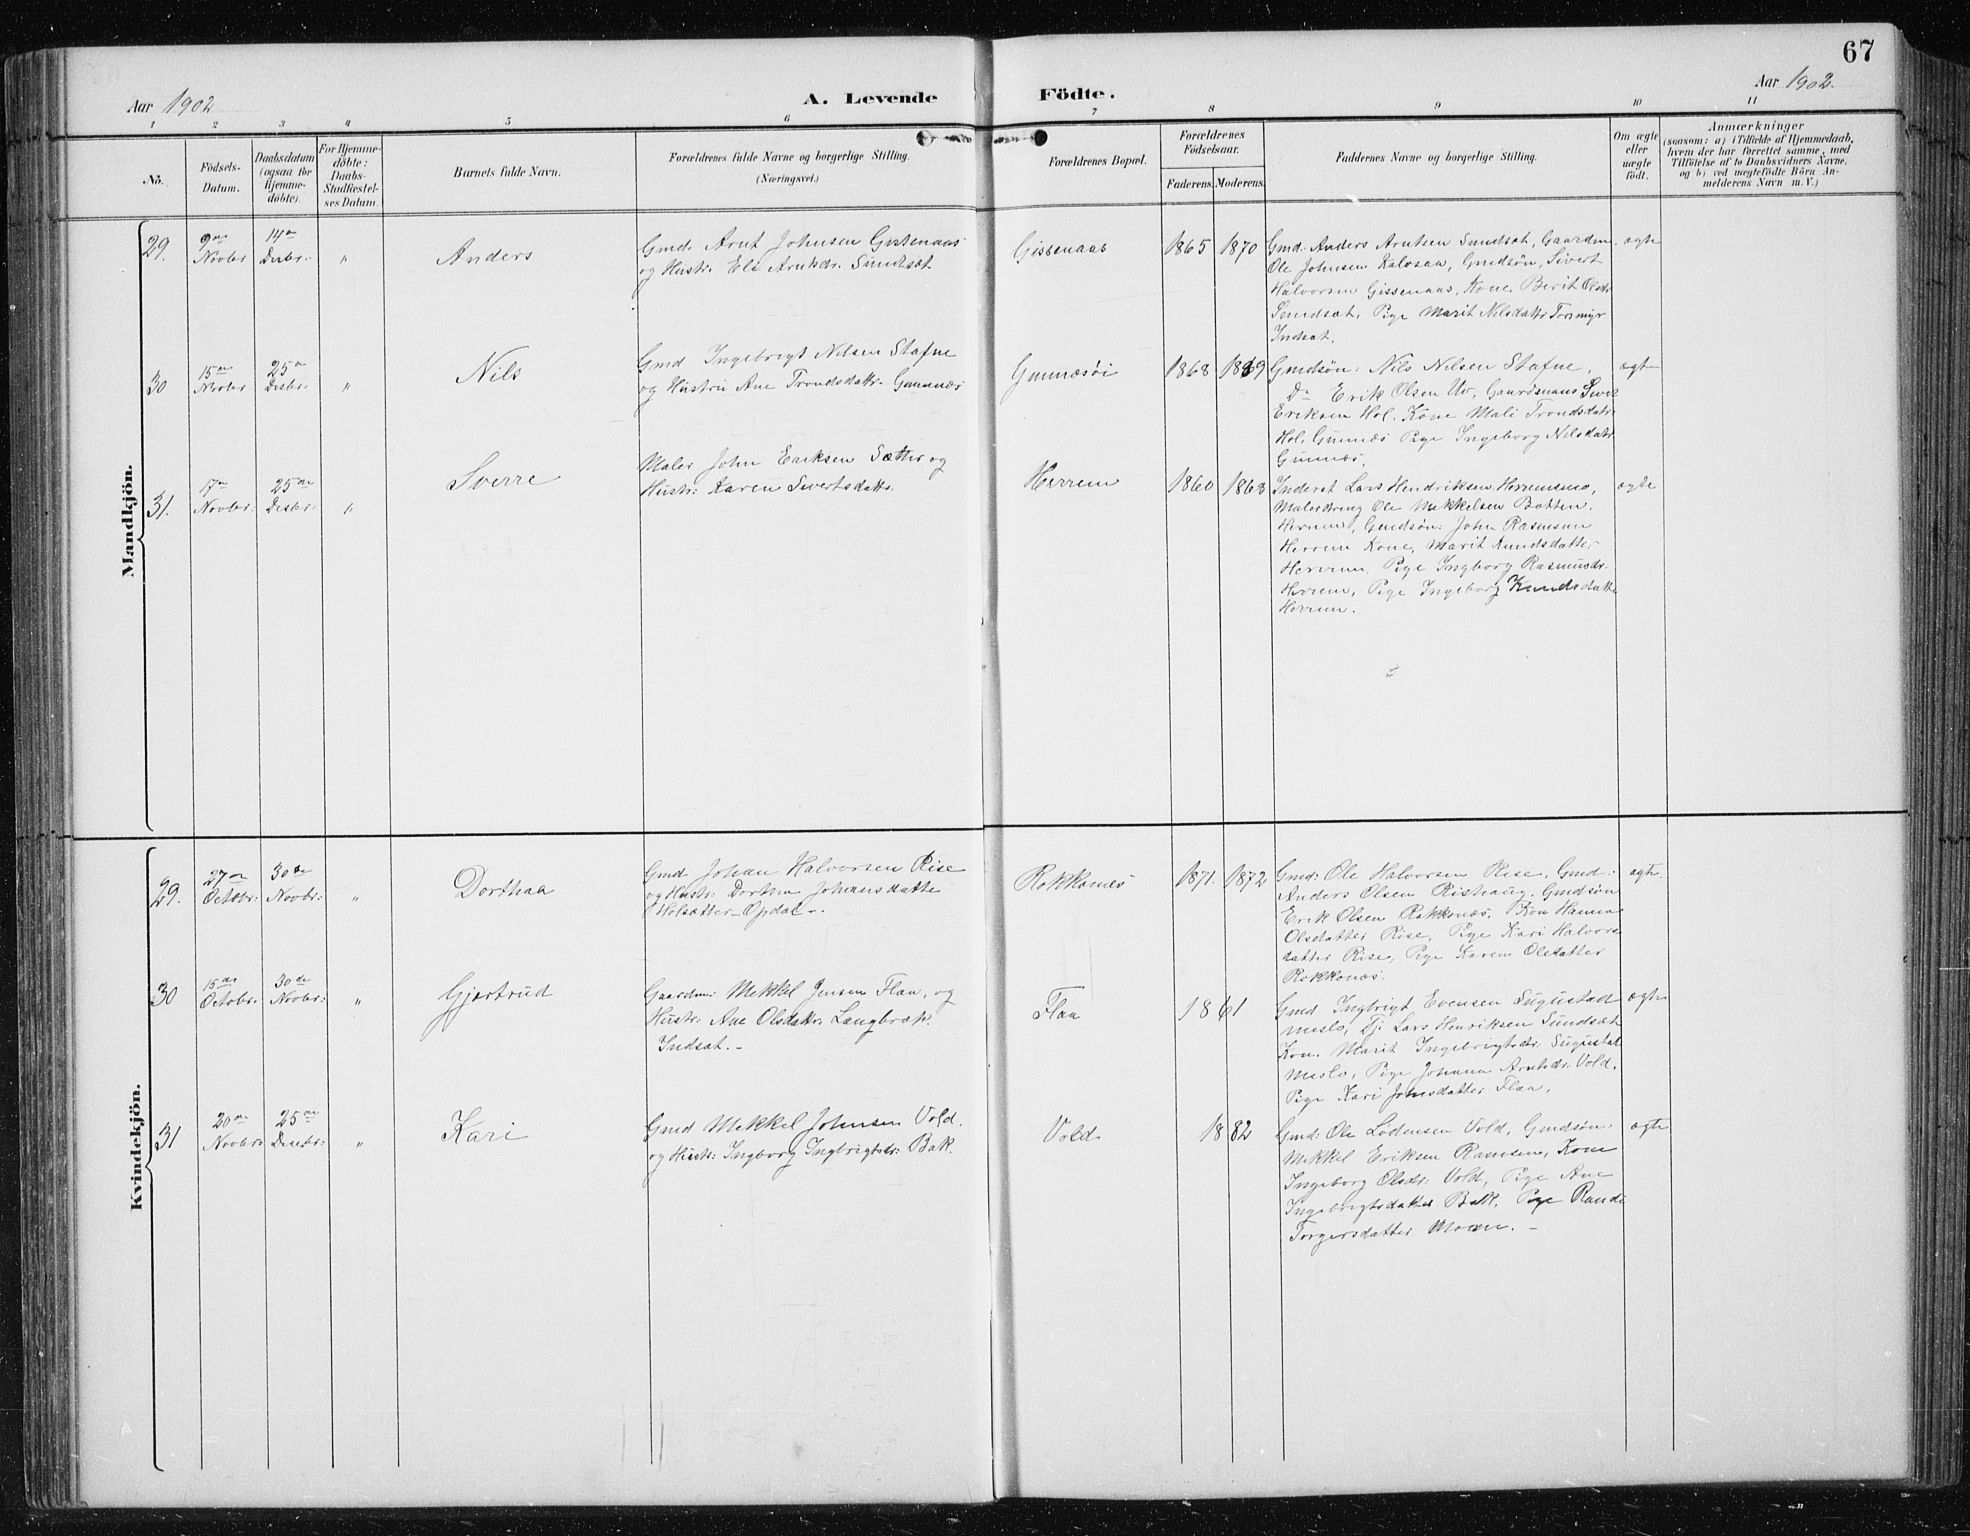 67
Aar 1902
A. Levende Födte.
Aar 1902.
1 2 3 4 5 6 7 8 9 10 11
No.
Födsels-
Datum.
Daabsdatum
(ogsaa for
Hjemme-
döbte).
For Hjemme-
döbte:
Daabs-
Stadfæstel-
ses Datum.
Barnets fulde Navn.
Forældrenes fulde Navne og borgerlige Stilling.
(Næringsvei.)
Forældrenes Bopæl.
Forældrenes
Födselsaar.
Faderens. Moderens.
Faddernes Navne og borgerlige Stilling.
Om ægte
eller
uægte
födt.
Anmærkninger
(saasom: a) i Tilfælde af Hjemmedaab,
hvem der har forrettet samme, med
Tilföielse af to Daabsvidners Navne,
og b) ved uægtefödte Börn An-
melderens Navn m.V.)
Mandkjön.
29.
9de
Novbr
14de
Desbr.
"
Anders
Gmd. Arnt Johnsen Gissenaas
og Hustr. Eli Arntsdr. Sundsæt
Gissenaas
1865 1870
Gmd. Anders Arntsen Sundsæt, Gaardm.
Ole Johnsen Kalvsaa, Gmdsøn, Sivert
Halvorsen Gissenaas, Kone Berit Olsdr
Sundsæt, Pige Marit Nilsdatter Torsmyr
Indset.
ægte
30
15de
Novbr
25de
Desbr
"
Nils
Gmd Ingebrigt Nilsen Stafne
og Hustru Ane Trondsdatter Gunnæs
Gunnæsöi
1868 1869
Gmdsøn: Nils Nilsen Stafne,
Do Erik Olsen Uv, Gaardmans Siver
Eriksen Hol. Kone Mali Trondsdatr.
Hol, Gunnæs Pige Ingeborg Nilsdatr
Gunnæs.
ægte
31.
17de
Novbr:
25de
Desbr:
"
Sverre
Maler John Eriksen Sætter og
Hustr: Karen Sivertsdattr.
Herrem
1860 1868
Inderst Lars Hendriksen Herremsmo,
Malerdreng Ole Mekkelsen Botten.
Herrem, Gmdsøn: John Rasmusen
Herrem Kone, Marit Knudsdatter
Herrem, Pige Ingborg Rasmusdr.
Herrem, Pige Ingeborg Knudsdatter
Herrem.
ægte
Kvindekjön.
29.
27de
Octobr:
30de
Novbr:
"
Dorthaa
Gmd Johan Halvorsen Rise
og Hustr: Dorthea Johansdatte
Holsætter - Opdal -.
Rokkonæs
1871. 1872
Gmd: Ole Halvorsen Rise, Gmd:
Anders Olsen Rishaug, Gmdsøn
Erik Olsen Rokkonæs, Kon Hanna
Olsdatter Rise, Pige Kari Halvors
datter Rise, Pige Karen Olsdatter
Rokkonæs.
ægte
30
15de
Octobr.
30de
Novbr:
"
Gjertrud
Gaardm: Mekkel Jensen Flaa, og
Hustr: Ane Olsdatr. Langbræk.
Indset. -
Flaa
1861
Gmd Ingbrigt Evensen Sugustad
Meslo, Lars Henriksen Sundsæt
Kon. Marit Ingebrigtsdr: Sugustad
Meslo, Pige Johanna Arntsdr: Vold.
Pige Kari Johnsdatter Flaa.
ægte
31
20de
Novbr:
25de
Desbr:
"
Kari
Gmd Mekkel Johnsen Vold.
og Hustr: Ingborg Ingbrigtsdr: Bak.
Vold.
1882
Gmd: Ole Lødensen Vold, Gmdsøn:
Mekkel Eriksen Ramsem, Kone
Ingeborg Olsdr: Vold, Pige Ane
Ingebrigtsdatter Bak. Pige Randi
Torgersdatter Moen. -
ægte